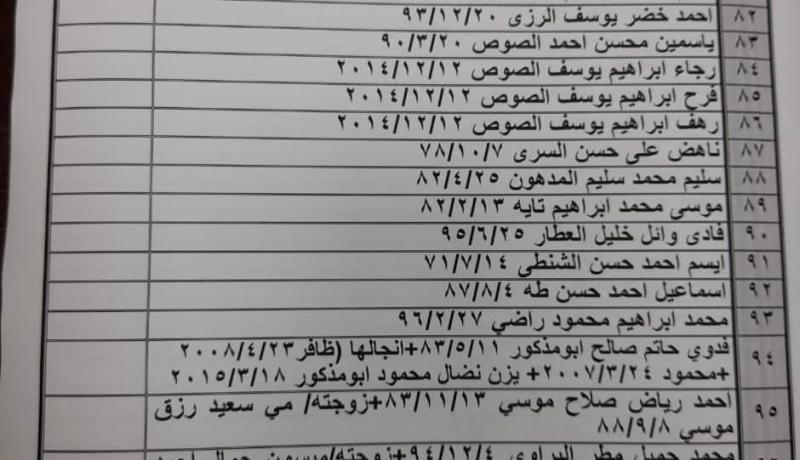 ٨٢ احمد خضر يوسف الرزى ٩٣/١٢/٢٠
٨٣ ياسمين محسن احمد الصوص ٩٠/٣/٢٠
٨٤ رجاء ابراهيم يوسف الصوص ٢٠١٤/١٢/١٢
٨٥ فرح ابراهيم يوسف الصوص ٢٠١٤/١٢/١٢
٨٦ رهف ابراهيم يوسف الصوص ٢٠١٤/١٢/١٢
٨٧ ناهض على حسن السرى ٧٨/١٠/٧
٨٨ سليم محمد سليم المدهون ٨٢/٤/٢٥
٨٩ موسى محمد ابراهيم تايه ٨٢/٢/١٣
٩٠ فادى وائل خليل العطار ٩٥/٦/٢٥
٩١ ايسم احمد حسن الشنطي ٧١/٧/١٤
٩٢ اسماعيل احمد حسن طه ٨٧/٨/٤
٩٣ محمد ابراهيم محمود راضي ٩٦/٢/٢٧
٩٤ فدوي حاتم صالح ابومذكور ٨٣/٥/١١+انجالها (ظافر٢٠٠٨/٤/٢٣
+محمود ٢٠٠٧/٣/٢٤+ يزن نضال محمود ابومذكور ٢٠١٥/٣/١٨
٩٥ احمد رياض صلاح موسي ٨٣/١١/١٣+زوجته/ مي سعيد رزق
موسي ٨٨/٩/٨
محمد جميل مطر البراوي ٩٤/١٢/٤+زوجته/ميسون جمال احمد